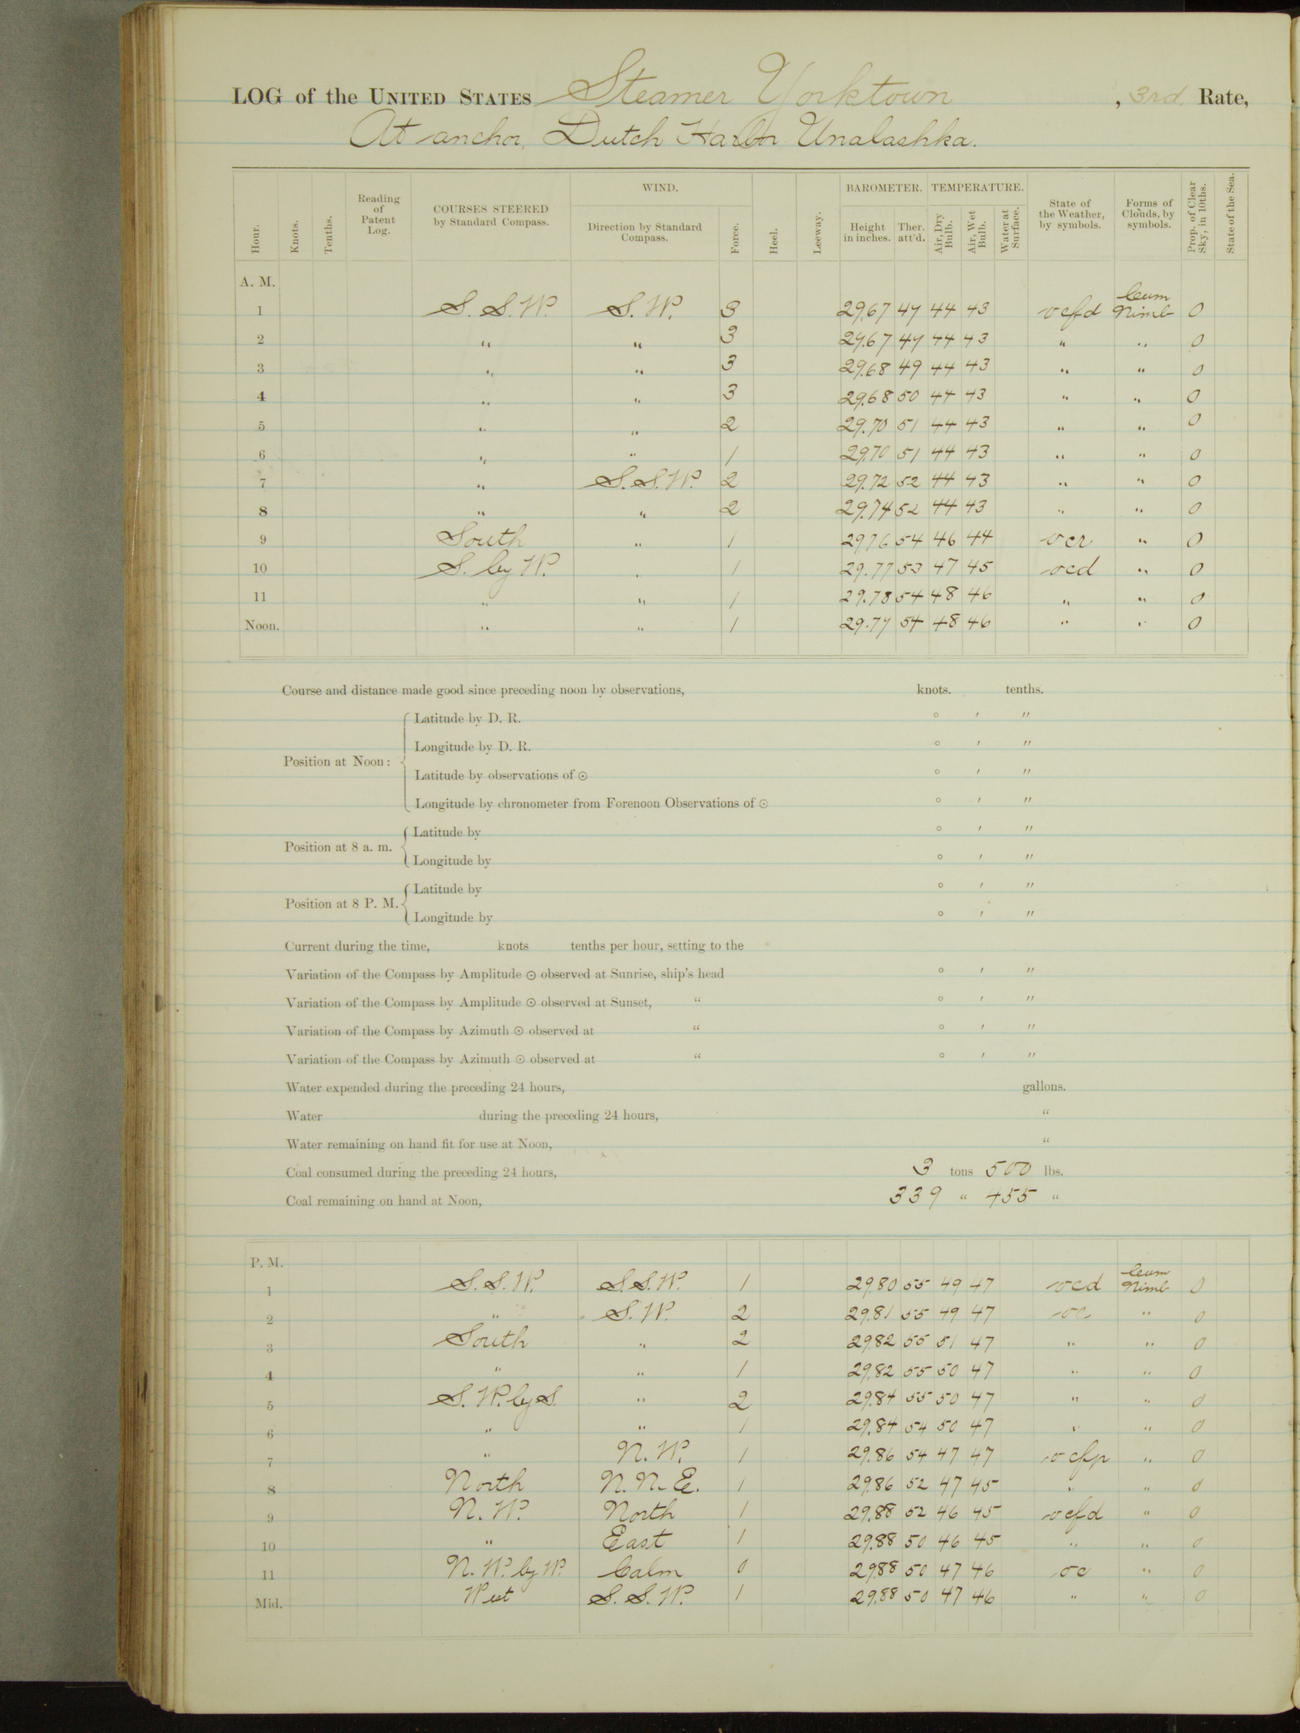 LOG of the UNITED STATES Steamer Yorktown, 3rd Rate,
At anchor, Dutch Harbor Unalashka.
Hour. Knots. Tenths. Reading of Patent Log. COURSES STEERED by Standard Compass. WIND. Direction by Standard Compass. Force. Heel. Leeway. BAROMETER. Height in inches. Ther. att'd. TEMPERATURE. Air, Dry Bulb. Air, Wet Bulb. Water at Surface. State of the Weather, by symbols. Forms of Clouds, by symbols. Prop. of Clear Sky, in 10ths. State of the Sea.
A. M.
1 S. S. W. S. W. 3 29.67 47 44 43 ocfd Cum Nimb 0
2 " " 3 29.67 47 44 43 " " 0
3 " " 3 29.68 49 44 43 " " 0
4 " " 3 29.68 50 44 43 " " 0
5 " " 2 29.70 51 44 43 " " 0
6 " " 1 29.70 51 44 43 " " 0
7 " S. S. W. 2 29.72 52 44 43 " " 0
8 " " 2 29.74 52 44 43 " " 0
9 South " 1 29.76 54 46 44 ocr " 0
10 S. by W. " 1 29.77 53 47 45 ocd " 0
11 " " 1 29.78 54 48 46 " " 0
Noon. " " 1 29.77 54 48 46 " " 0
Course and distance made good since preceding noon by observations, knots. tenths.
Position at Noon: Latitude by D. R. ° ′ ″
Longitude by D. R. ° ′ ″
Latitude by observations of ☉ ° ′ ″
Longitude by chronometer from Forenoon Observations of ☉ ° ′ ″
Position at 8 a. m. Latitude by ° ′ ″
Longitude by ° ′ ″
Position at 8 P. M. Latitude by ° ′ ″
Longitude by ° ′ ″
Current during the time, knots tenths per hour, setting to the
Variation of the Compass by Amplitude ☉ observed at Sunrise, ship's head ° ′ ″
Variation of the Compass by Amplitude ☉ observed at Sunset, " ° ′ ″
Variation of the Compass by Azimuth ☉ observed at " ° ′ ″
Variation of the Compass by Azimuth ☉ observed at " ° ′ ″
Water expended during the preceding 24 hours, gallons.
Water during the preceding 24 hours, "
Water remaining on hand fit for use at Noon, "
Coal consumed during the preceding 24 hours, 3 tons 500 lbs.
Coal remaining on hand at Noon, 339 " 455 "
P. M.
1 S. S. W. S. S. W. 1 29.80 55 49 47 ocd Cum Nimb 0
2 " S. W. 2 29.81 55 49 47 oc " 0
3 South " 2 29.82 55 51 47 " " 0
4 " " 1 29.82 55 50 47 " " 0
5 S. W. by S. " 2 29.84 55 50 47 " " 0
6 " " 1 29.84 54 50 47 " " 0
7 " N. W. 1 29.86 54 47 47 ocfp " 0
8 North N. N. E. 1 29.86 52 47 45 " " 0
9 N. W. North 1 29.88 52 46 45 ocfd " 0
10 " East 1 29.88 50 46 45 " " 0
11 N. W. by W. Calm 0 29.88 50 47 46 oc " 0
Mid. West S. S. W. 1 29.88 50 47 46 " " 0